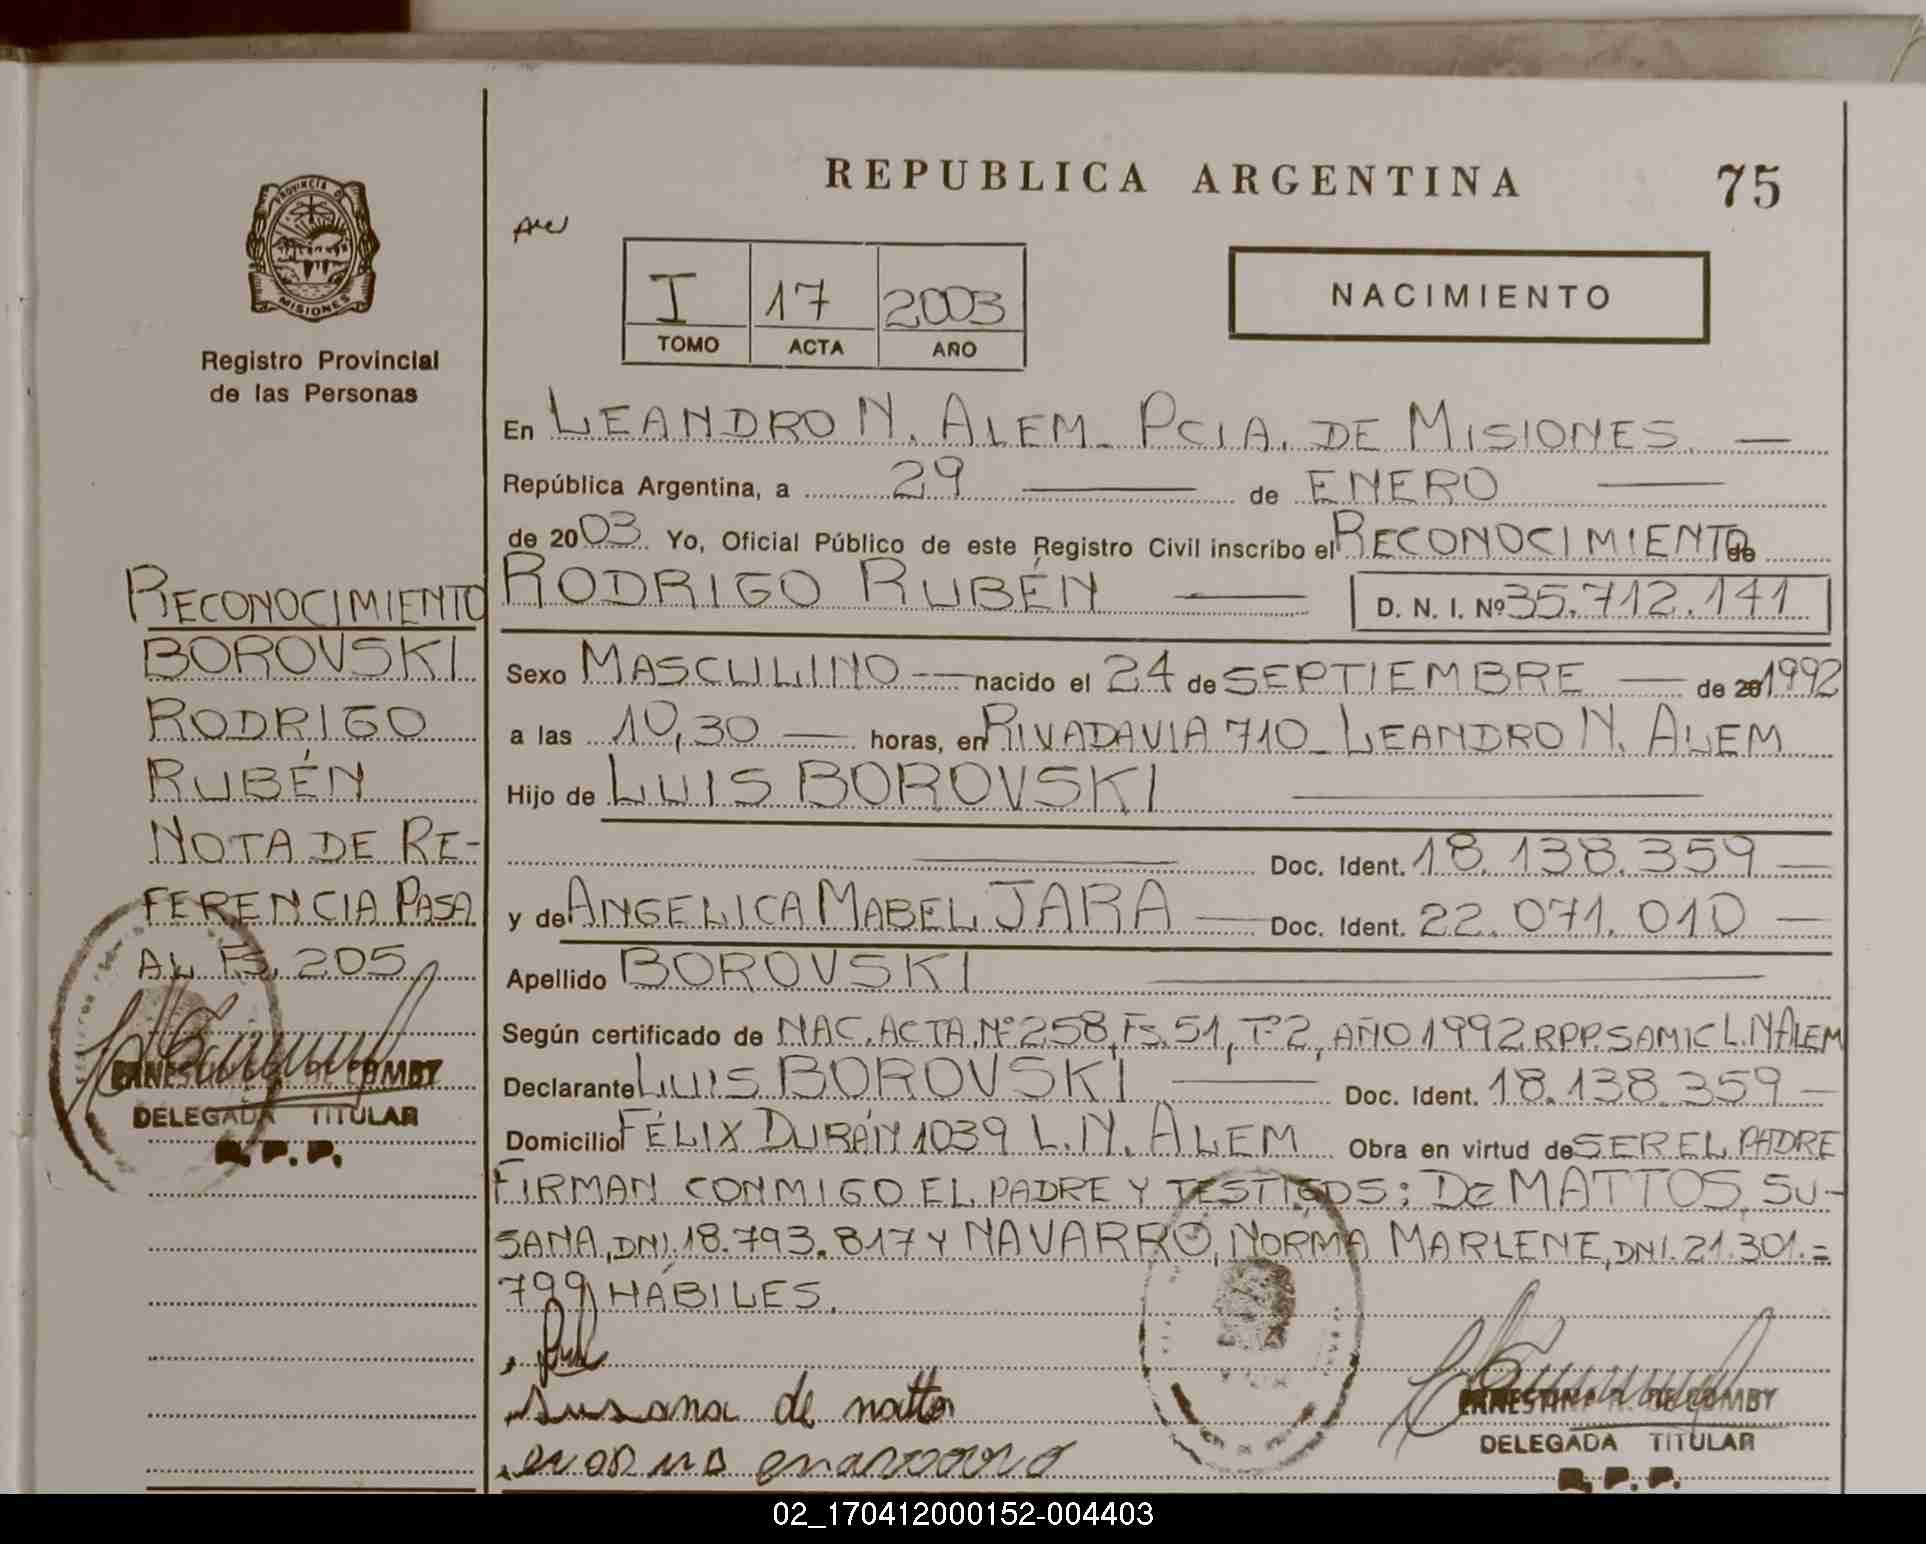 REPUBLICA ARGENTINA 75
PROVINCIA DE
MISIONES
Registro Provincial
de las Personas
I 17 2003
TOMO ACTA AÑO
NACIMIENTO
En LEANDRO N. ALEM - PCIA. DE MISIONES. —
República Argentina, a 29 — de ENERO —
de 2003. Yo, Oficial Público de este Registro Civil inscribo el RECONOCIMIENTO de
RODRIGO RUBÉN — D. N. I. Nº 35.712.141
Sexo MASCULINO — nacido el 24 de SEPTIEMBRE — de 20 1992
a las 10,30 — horas, en RIVADAVIA 710 - LEANDRO N. ALEM
Hijo de LUIS BOROVSKI —
— Doc. Ident. 18.138.359 —
y de ANGELICA MABEL JARA — Doc. Ident. 22.071.010 —
Apellido BOROVSKI —
Según certificado de NAC. ACTA. Nº 258, Fs. 51, Tº 2, AÑO 1992 RPP. SAMIC L.N ALEM
Declarante LUIS BOROVSKI — Doc. Ident. 18.138.359 —
Domicilio FÉLIX DURÁN 1039 L.N. ALEM Obra en virtud de SER EL PADRE
FIRMAN CONMIGO EL PADRE Y TESTIGOS: De MATTOS, SU-
SANA, DNI. 18.793.817 Y NAVARRO, NORMA MARLENE, DNI. 21.301.=
799, HÁBILES.
susana de matto
ERNESTINA R. DE COMBY
DELEGADA TITULAR
R. P. P.
RECONOCIMIENTO
BOROVSKI
RODRIGO
RUBÉN
NOTA DE RE-
FERENCIA PASA
AL Fs. 205
ERNESTINA R. DE COMBY
DELEGADA TITULAR
R. P. P.
02_170412000152-004403